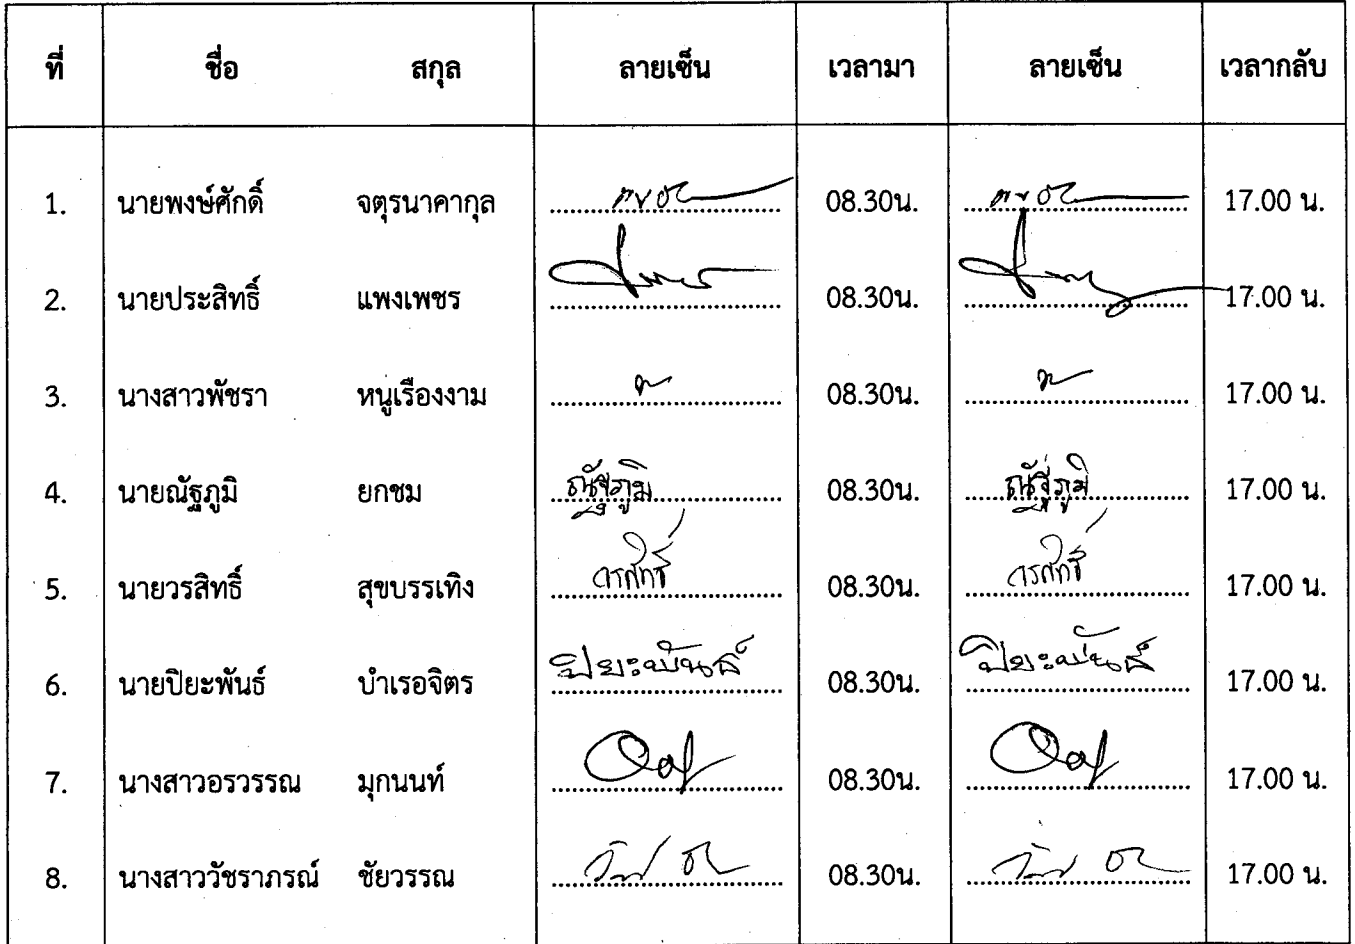 ที่ ชื่อ สกุล ลายเซ็น เวลามา ลายเซ็น เวลากลับ
1. นายพงษ์ศักดิ์ จตุรนาคากุล 08.30น. 17.00 น.
2. นายประสิทธิ์ แพงเพชร 08.30น. 17.00 น.
3. นางสาวพัชรา หนูเรืองงาม 08.30น. 17.00 น.
4. นายณัฐภูมิ ยกชม ณัฐภูมิ 08.30น. ณัฐภูมิ 17.00 น.
5. นายวรสิทธิ์ สุขบรรเทิง วรสิทธิ์ 08.30น. วรสิทธิ์ 17.00 น.
6. นายปิยะพันธ์ บำเรอจิตร ปิยะพันธ์ 08.30น. ปิยะพันธ์ 17.00 น.
7. นางสาวอรวรรณ มุกนนท์ 08.30น. 17.00 น.
8. นางสาววัชราภรณ์ ชัยวรรณ 08.30น. 17.00 น.